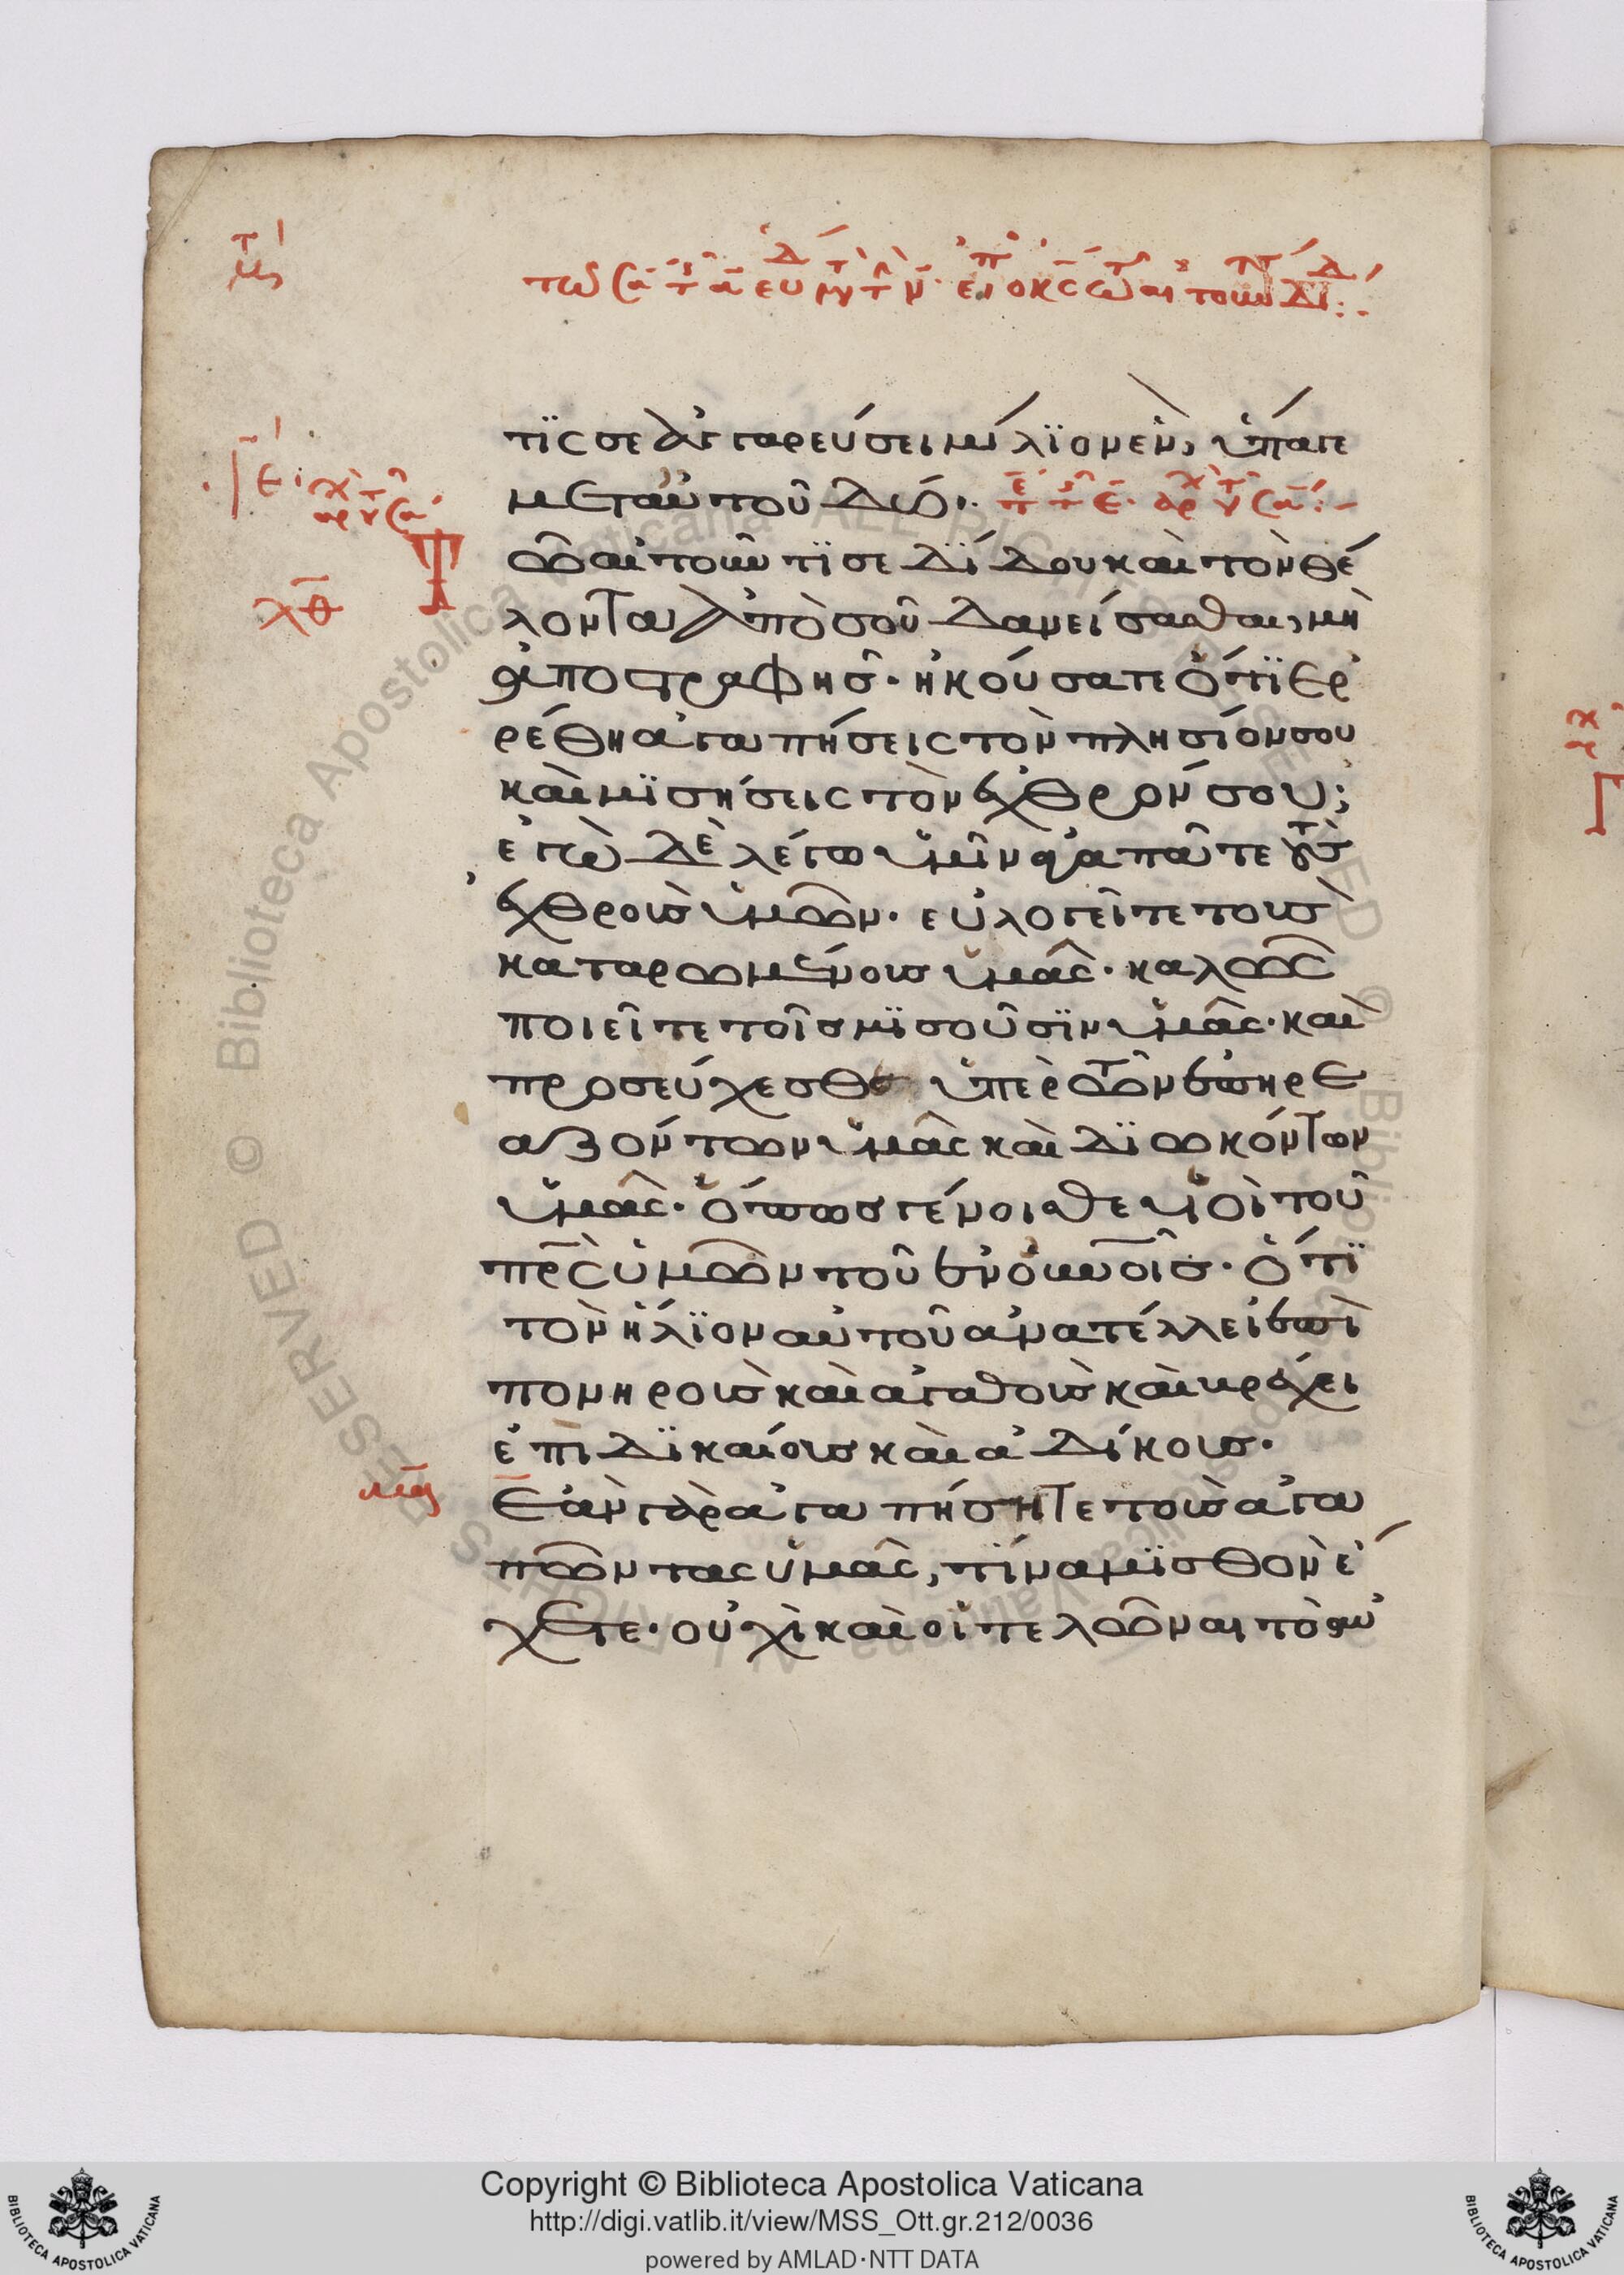 τϊς σε ἀγγαρεύσει μίλϊον ἕν, ὕπαγε
μετ αὐτοῦ δύο·
τῶ αἰτοῦντϊ σε δΐδου καὶ τὸν θέ
λοντα ἀπὸ σοῦ δανείσασθαι, μὴ
ἀποστραφῆσ· ἠκούσατε ὅτϊ ἐρ
ρέθη ἀγαπήσεις τὸν πλησίον σου
καὶ μϊσήσεις τὸν ἐχθρόν σου;
ἐγὼ δὲ λέγω ὑμῖν ἀγαπᾶτε τοὺσ
ἐχθροὺσ ὑμῶν· εὐλογεῖτε τοὺσ
καταρωμένουσ ὑμᾶς· καλῶς
ποιεῖτε τοῖσ μϊσοῦσϊν ὑμᾶς· καὶ
προσεύχεσθε ὑπὲρ τῶν ἐπηρε
αζόντων ὑμᾶς καὶ δϊωκόντων
ὑμᾶς· ὅπωσ γένοισθε υἱοὶ τοῦ
πρ̅ς ὑμῶν τοῦ ἐν οὐνοῖσ· ὅτϊ
τὸν ἥλϊον αὐτοῦ ἀνατέλλει ἐπὶ
πονηροὺσ καὶ ἀγαθοὺσ καὶ βρέχει
ἐπὶ δϊκαίουσ καὶ ἀδίκουσ·
Ἐὰν γὰρ ἀγαπήσητε τοὺσ ἀγα
πῶντας ὑμᾶς, τΐνα μϊσθὸν ἔ
χετε· οὐχὶ καὶ οἱ τελῶναι τὸ αὐ
λθ
Τ
Copyright © Biblioteca Apostolica Vaticana
http://digi.vatlib.it/view/MSS_Ott.gr.212/0036
powered by AMLAD·NTT DATA
BIBLIOTECA APOSTOLICA VATICANA
BIBLIOTECA APOSTOLICA VATICANA